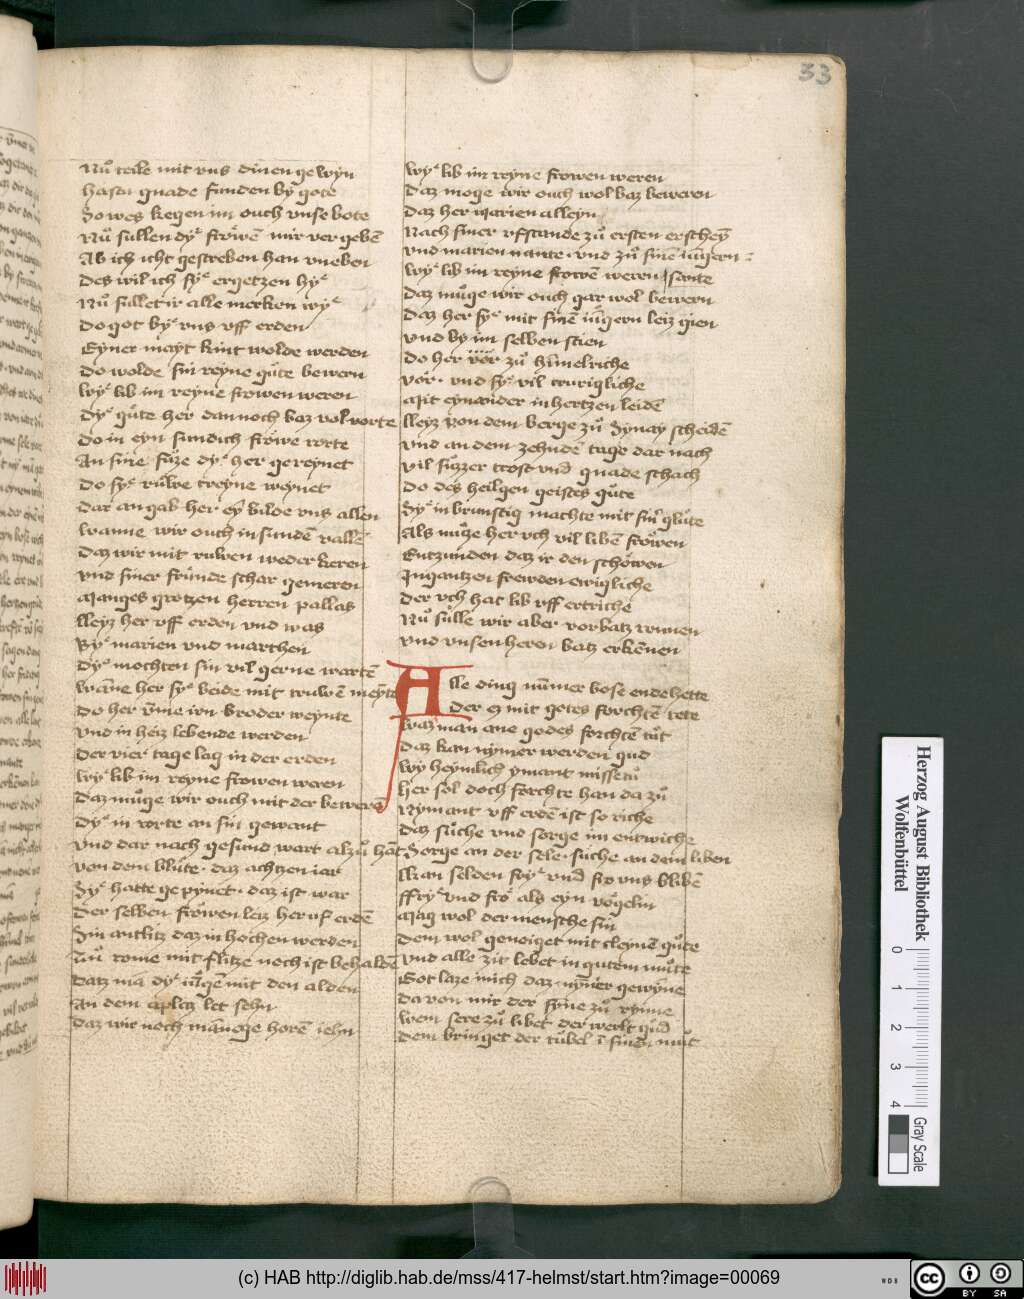 33
Nuͦ teile mit vns dinen gewyn
hastu gnade funden by gote
So wes kegen im ouch vnse bote
Nuͦ sullen dyͤ froͤwē mir vergebē
Ab ich icht gestreben han vneben
Des wil ich syͤ ergetzen hyͤ
Nuͦ sullet ir alle merken wyͤ
Do got byͤ vns vff erden
Eyner mayt kint wolde werden
Do wolde sin reyne guͤte bewern
Wyͤ lib im reyne frowen weren
Dyͤ guͤte her dannoch baz volvorte
Do in eyn sundich froͤwe rorte
An sine fuͤze dyͤ her gereynet
Do syͤ ruͤwe treyne weynet
Dar an gab her eyͤ bilde vns allen
Wanne wir ouch in sundē vallē
Daz wir mit ruwen weder keren
Vnd siner fruͤnde schar gemeren
Manges grotzen herren pallas
Lleyz her vff erden vnd was
Byͤ marien vnd marthen
Dyͤ mochten sin vil gerne wartē
Wāne her syͤ beide mit truwē meyte
Do her vͤme irn broder weynte
Vnd in heiz lebende werden
Der vier tage lag in der erden
Wyͤ lib im reyne frowen weren
Daz muͤge wir ouch mit der bewerē
Dyͤ in rorte an sin gewant
Vnd dar nach gesund wart alzuͦ hāt
Von dem blute · daz achtzen iar
Syͤ hatte gepynet · daz ist war
Der selben froͤwen leiz her vf erdē
Sin antlitz daz in hochen werden
Zuͦ rome mit flitze noch ist behaldē
Datz mā dyͤ iūgē mit den alden
An dem aplatz let sehn
Daz wir noch manege horē iehn
Wyͤ lib im reyne frowen weren
Daz moge wir ouch wol baz beweren
Daz her marien alleyn
Nach siner vfstande zuͦ ersten erscheȳ
Vnd marien nante · vnd zuͦ sinē iūgern
Wyͤ lib im reyne frowē weren sante
Daz muͤge wir ouch gar wol bewern
Daz her syͤ mit sinē iūgern leiz gien
Vnd by im selben stien
Do her vͤor zuͦ himelriche
Vor · vnd syͤ vil trurigliche
Mit eynander in hertzen leidē
Lleyz von dem berge zuͦ Synay scheidē
Vnd an dem zehndē tage dar nach
Vil suͤzzer trost vnd gnade schach
Do des heilgen geistes guͤte
Syͤ inbrunstig machte mit sinʳ gluͤte
Als muͤze her vch vil liben froͤwen
Entzunden daz ir den schoͤwen
In gantzen frewden ewigliche
Der vch hat lib vff ertriche
Nuͦ suͤlle wir aber vorbatz rumen
Vnd vnsen heren batz erkēnen
Alle ding nūmer bose ende hette
Der eȝ mit gotes forchtē tete
Swaz man ane godes forchtē tut
Daz kan nymer werden gud
Wy heymlich ymant missetuͦ
Her sol doch forchte han da zuͦ
Nymant vff erdē ist so riche
Daz suͤche vnd sorge im entwiche
Sorge an der sele · suche an dem liben
Man selden syͤ vnd fro vns blibē
ffryͤ vnd froͤ als eyn voͤgelin
Mag wol der mensche sin
Dem wol geneiget mit cleynē guͤte
Vnd alle zit lebet in gutem muͤte
Got laze mich daz nymer gewȳne
Da von mir der syne zuͦ rynne
Wem sere zuͦ libet der werlt guͦd
Dem bringet der tuͤbel ī sinen muͦt
Herzog August Bibliothek
Wolfenbüttel
0 1 2 3 4
Gray Scale
(c) HAB http://diglib.hab.de/mss/417-helmst/start.htm?image=00069
WDB
cc
BY SA